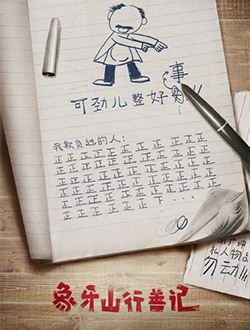 事
可劲儿整好!!
我欺负过的人:
正正正正正正正正正正正
正正正正正正正正正正正
正正正正正正正正正正正
正正正正正正正正正正正
正正正正正正正正正正正
正正正正正正下...
私人物品
勿动!!
象牙山行善记